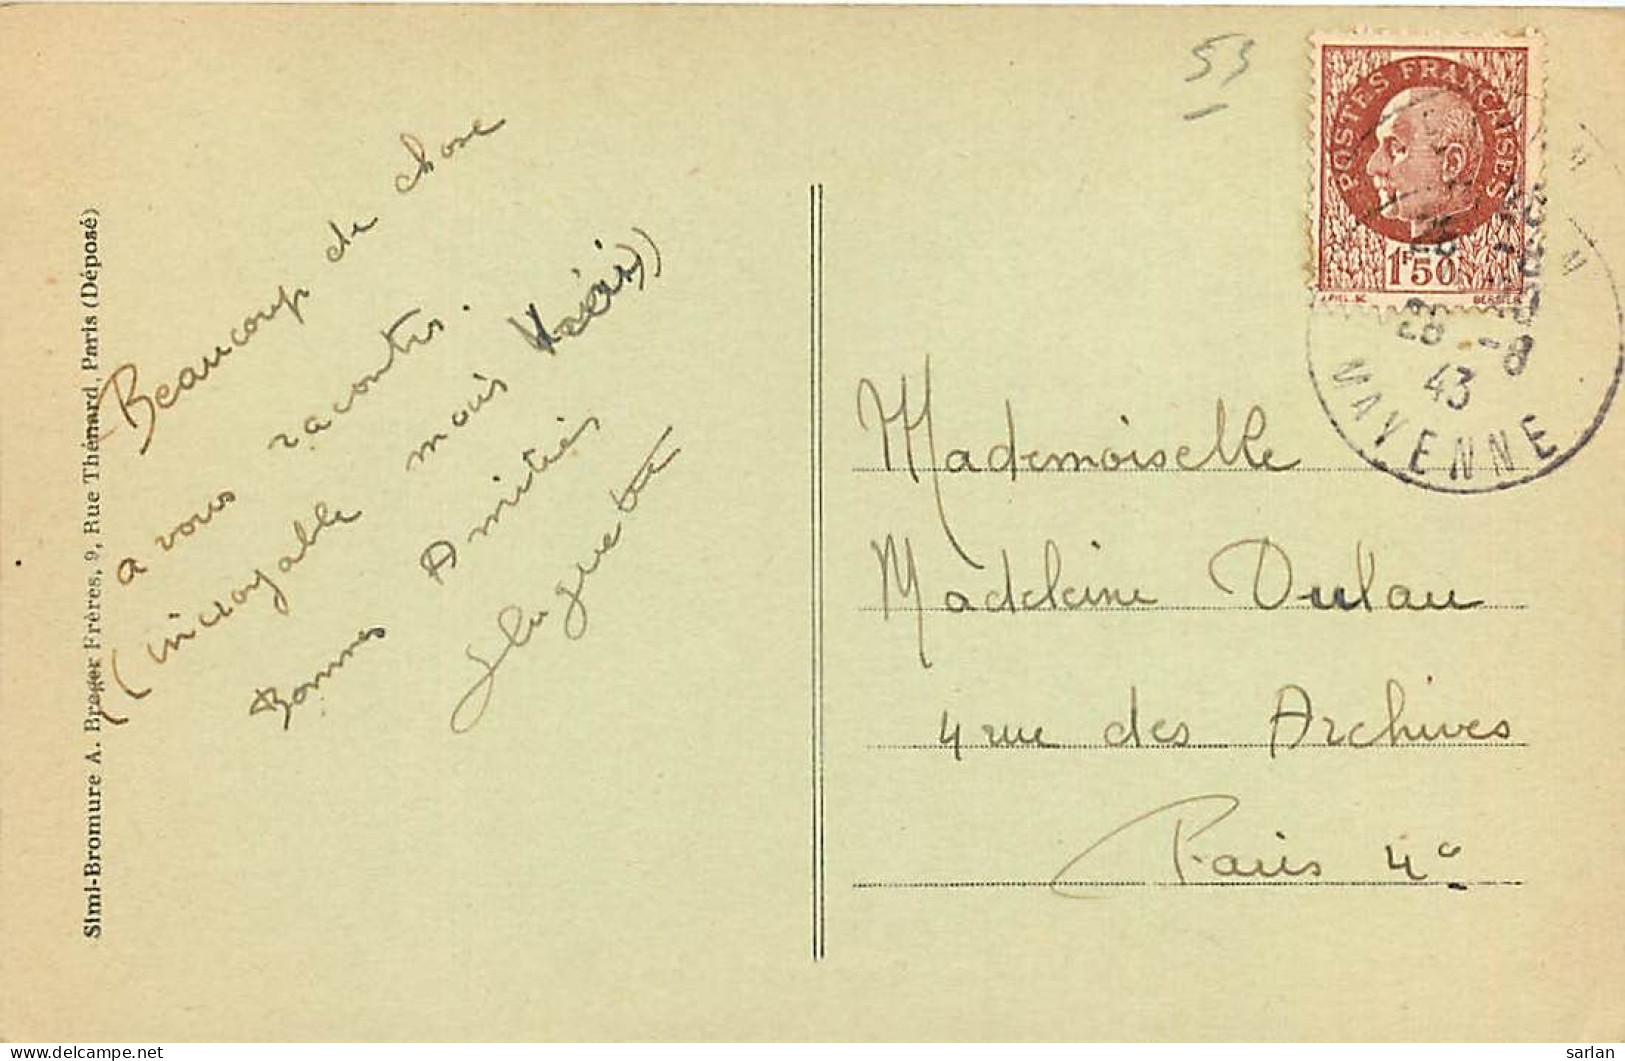 53
POSTES FRANÇAISES
1F50
BERSIER
28 -8
43
MAYENNE
Beaucoup de chose
a vous raconter.
(incroyable mais
Bonnes Amitiés
Huguette
Mademoiselle
Madeleine Dulau
4 rue des Archives
Paris 4e
Simi-Bromure A. Breger Frères, 9, Rue Thénard, Paris (Déposé)
delcampe.net
sarlan